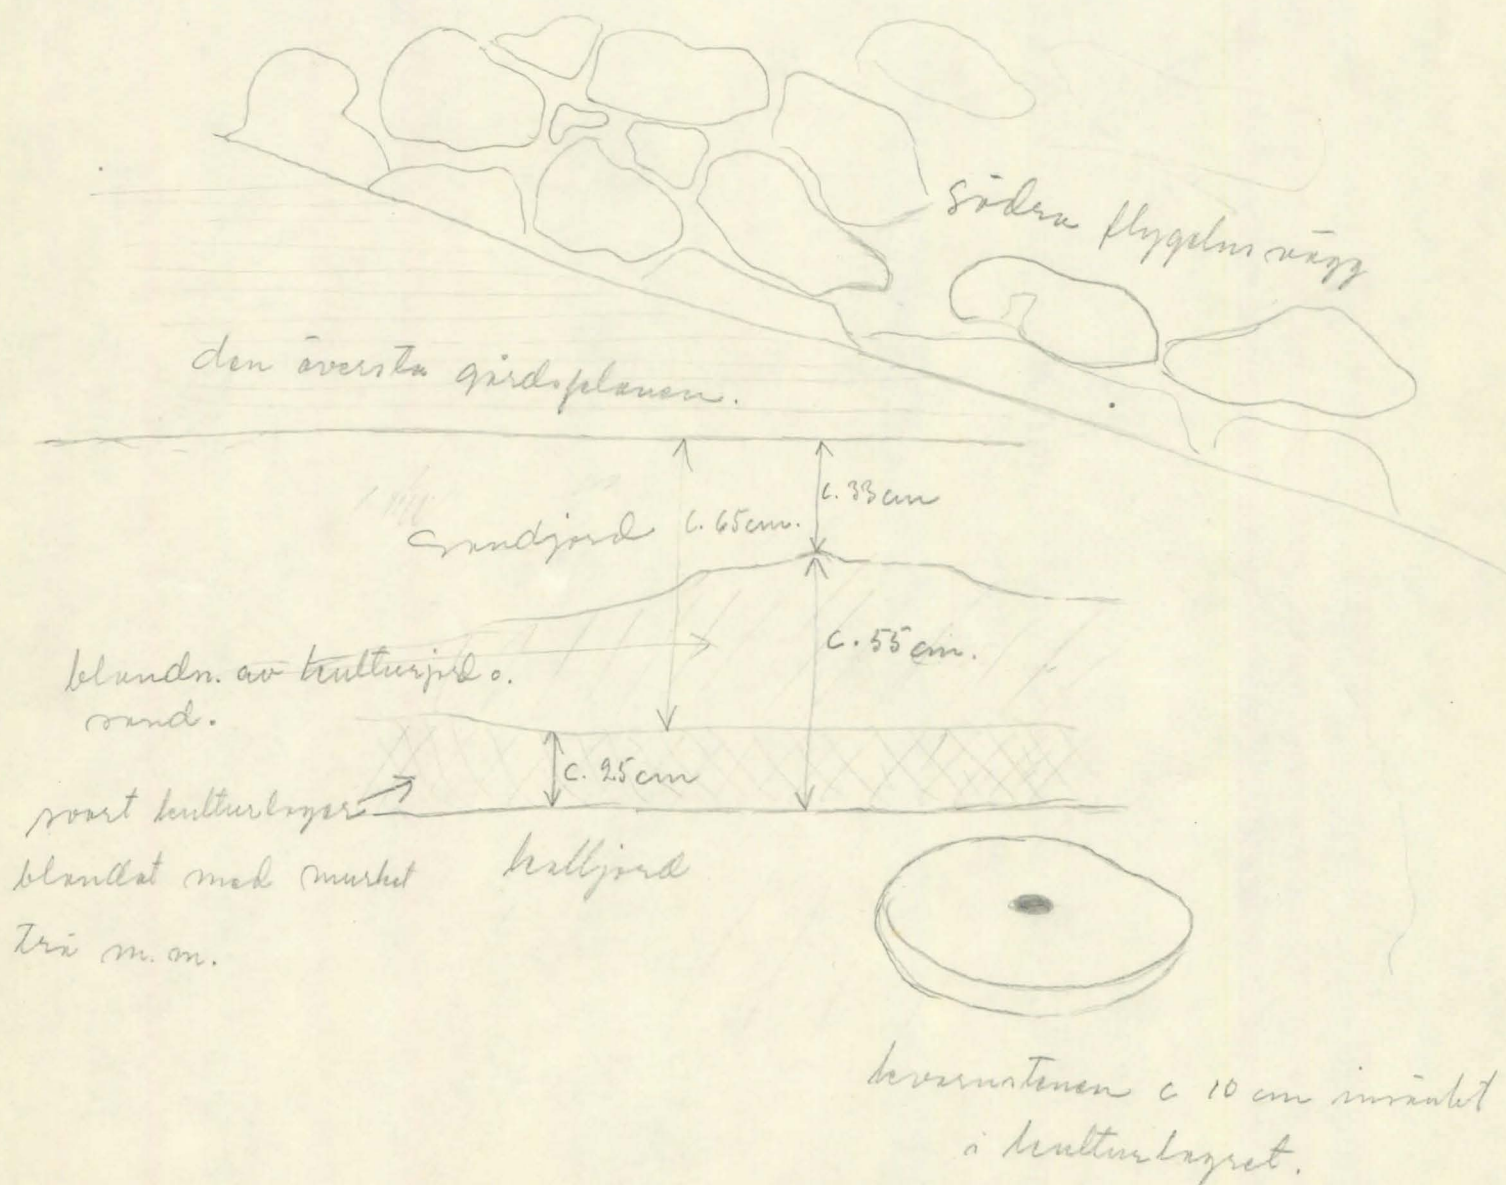 södra flygelns vägg
den översta gårdsplanen.
c. 33 cm
sandjord
c. 65 cm.
c. 55 cm.
blandn. av kulturjord o.
sand.
c. 25 cm
svart kulturlager
blandat med murket
trä m.m.
kalljord
kvarnstenen c 10 cm insänkt
i kulturlagret.